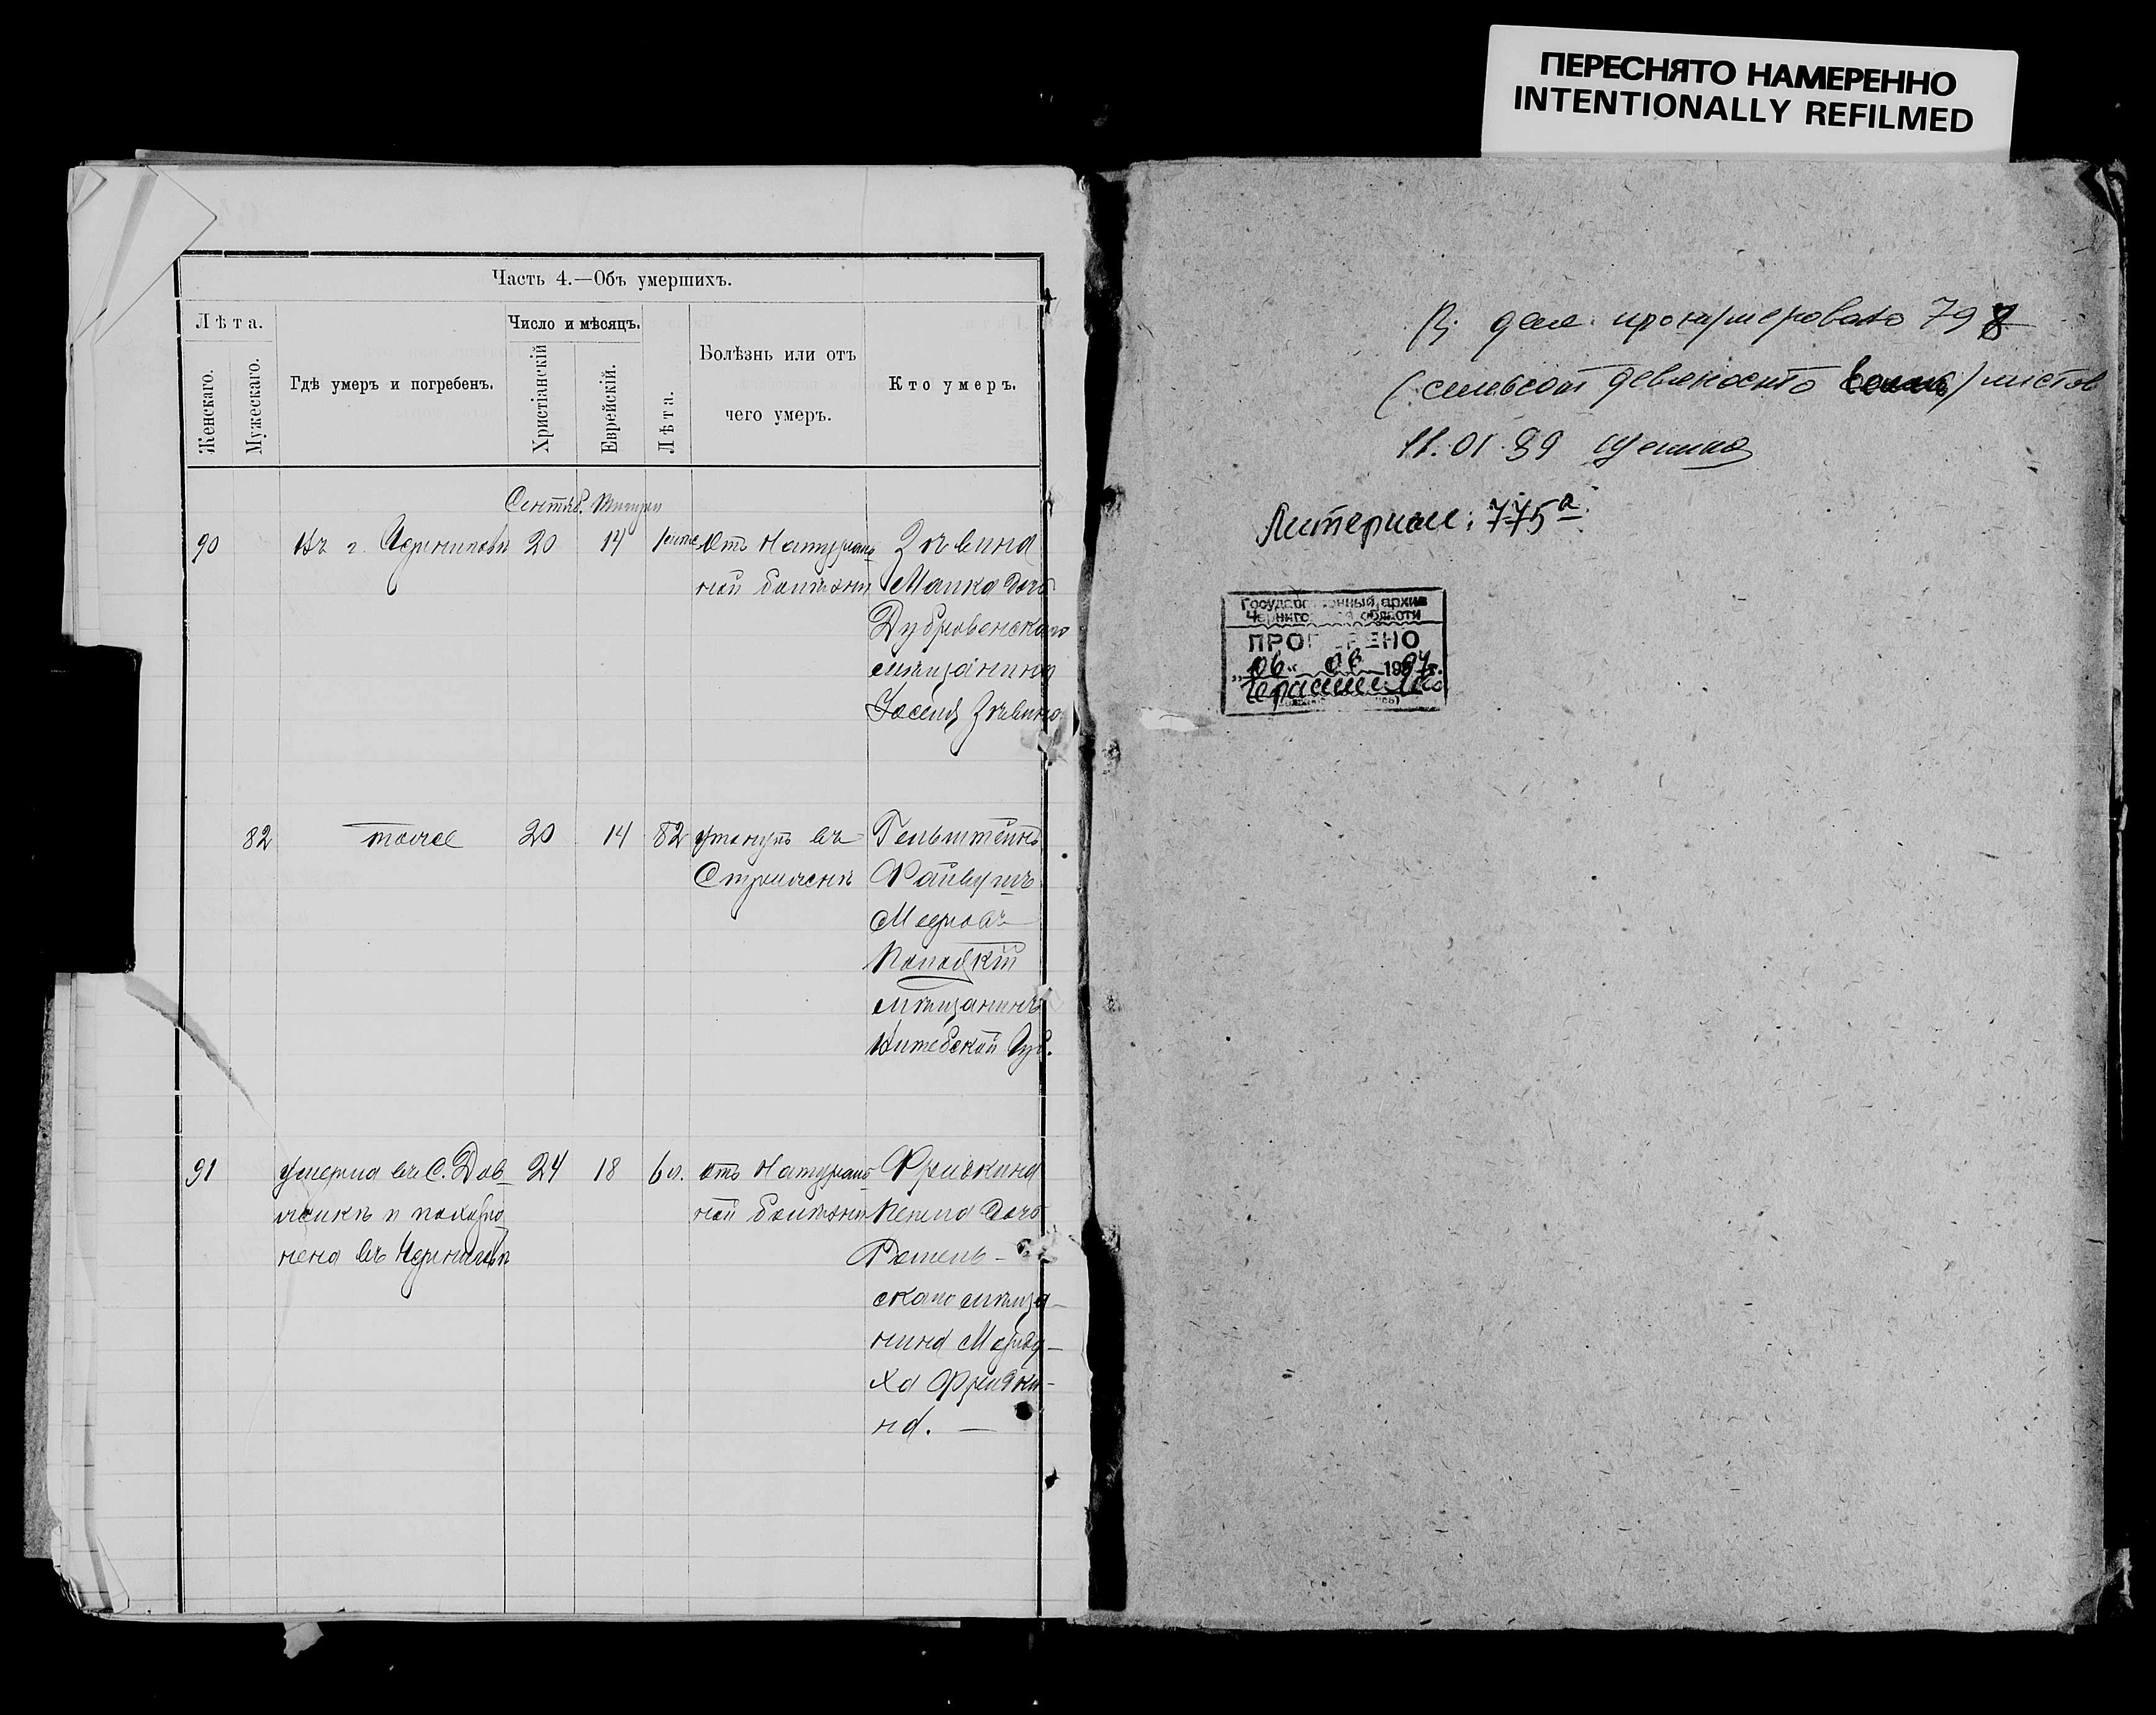 ПЕРЕСНЯТО НАМЕРЕННО
INTENTIONALLY REFILMED
Часть 4.—Объ умершихъ.
Лѣта.
Женскаго.
Мужескаго.
Гдѣ умеръ и погребенъ.
Число и мѣсяцъ.
Христіанскій
Еврейскій.
Лѣта.
Болѣзнь или отъ
чего умеръ.
Кто умеръ.
Сентяб. Тишри
90 Въ г. Черниговѣ 20 14 Отъ натураль
ной болѣзни
Малка дочь
Дубровенскаго
мѣщанина
82 тоже 20 14 82 утонулъ въ
Стриженѣ
Гельштейнъ
Файвушъ
Мееровъ
Полоцкій
мѣщанинъ
Витебской Губ.
91 умерла въ С. Дов
жикѣ и похоро
нена въ Черниговѣ
24 18 6 л. отъ натураль
ной болѣзни
Фрискина
дочь
скаго мѣща-
нина Морду-
ха
на.
В деле пронумеровано 798
(семьсот девяносто) листов
11.01.89
Литерные: 775а
Государственный архив
Черниговской области
ПРОВЕРЕНО
„06" 06 199 г.